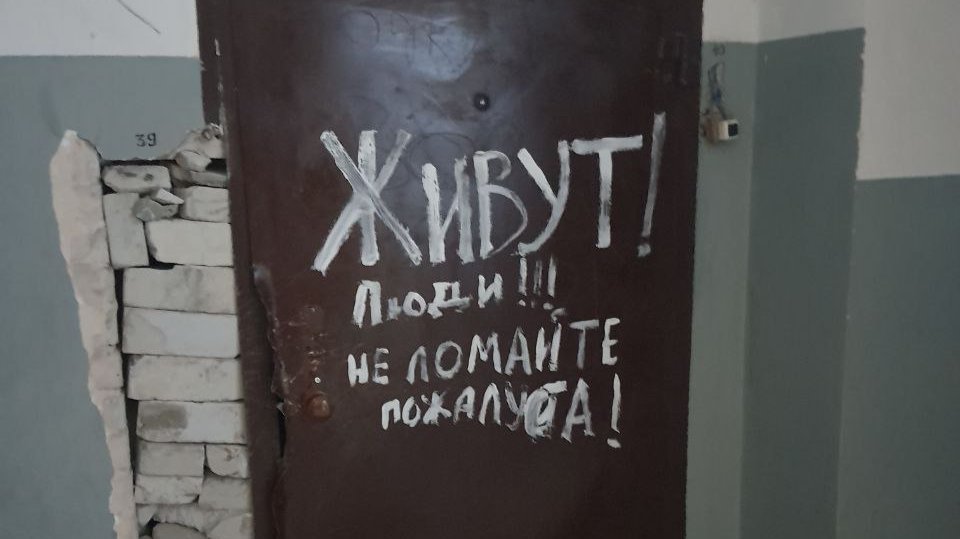 39
ЖИВУТ!
Люди!!!
НЕ ЛОМАЙТЕ
ПОЖАЛУБА!